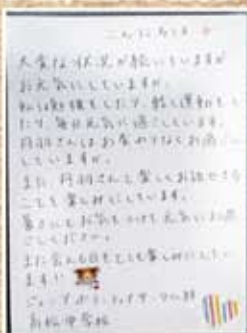 こんにちは
大変な状況が続いていますが
お元気にしていますか。
私は勉強をしたり、軽く運動をし
たり、毎日元気に過ごしています。
丹羽さんはお変わりなくお過ごし
していますか。
また 丹羽さんと楽しくお話できる
ことを楽しみにしています。
暑さに お気をつけて 元気にお過
ごしください。
また会える日をとても楽しみにしてい
ます!!
高松中学校